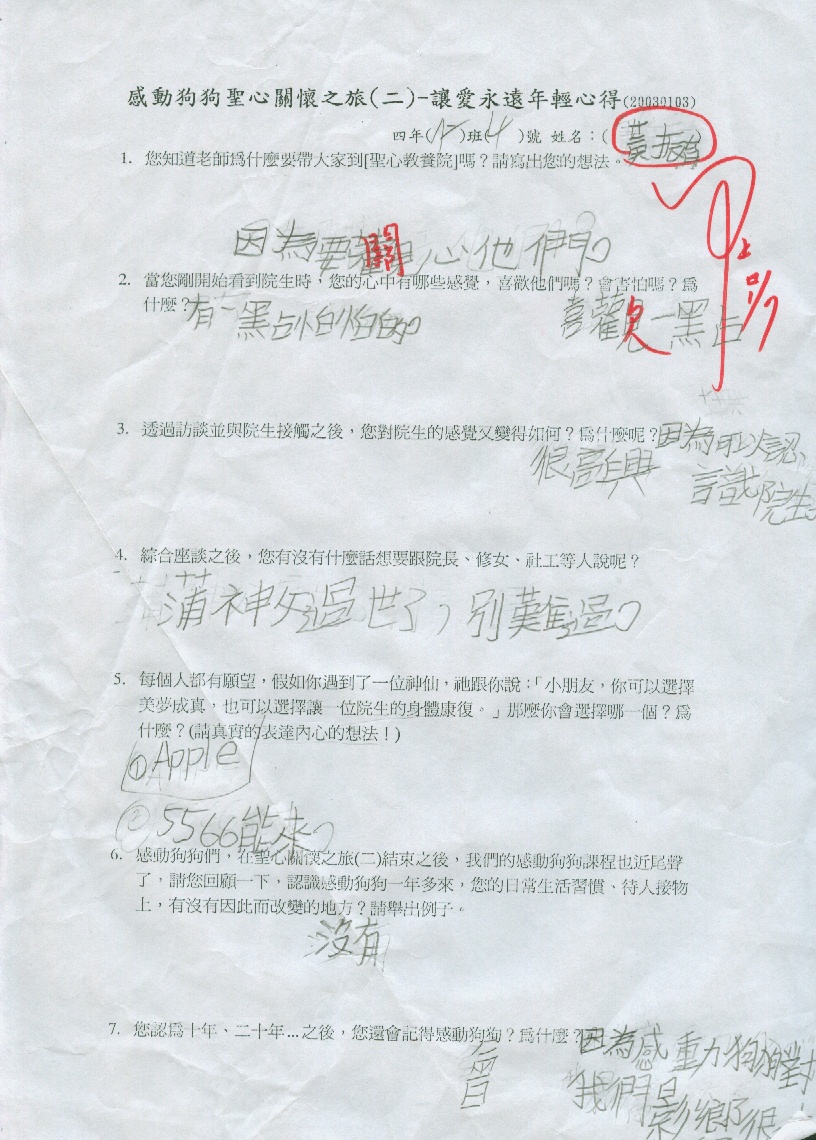 感動狗狗聖心關懷之旅(二)-讓愛永遠年輕心得(20030103)
四年( )班(4)號 姓名：(黃振
1. 您知道老師為什麼要帶大家到[聖心教養院]嗎？請寫出您的想法。
因為要關心他們。
2. 當您剛開始看到院生時，您的心中有哪些感覺，喜歡他們嗎？會害怕嗎？為
什麼？
有一黑占怕怕的。
喜欢一黑占
3. 透過訪談並與院生接觸之後，您對院生的感覺又變得如何？為什麼呢？
很高興
因為可以認
識院生。
4. 綜合座談之後，您有沒有什麼話想要跟院長、修女、社工等人說呢？
蒲神父過世了，別難過。
5. 每個人都有願望，假如你遇到了一位神仙，祂跟你說：「小朋友，你可以選擇
美夢成真，也可以選擇讓一位院生的身體康復。」那麼你會選擇哪一個？為
什麼？(請真實的表達內心的想法！)
①Apple
②5566能來。
6. 感動狗狗們，在聖心關懷之旅(二)結束之後，我們的感動狗狗課程也近尾聲
了，請您回顧一下，認識感動狗狗一年多來，您的日常生活習慣、待人接物
上，有沒有因此而改變的地方？請舉出例子。
沒有
7. 您認為十年、二十年...之後，您還會記得感動狗狗？為什麼？
會
因為感動狗狗對
我們是
影響很